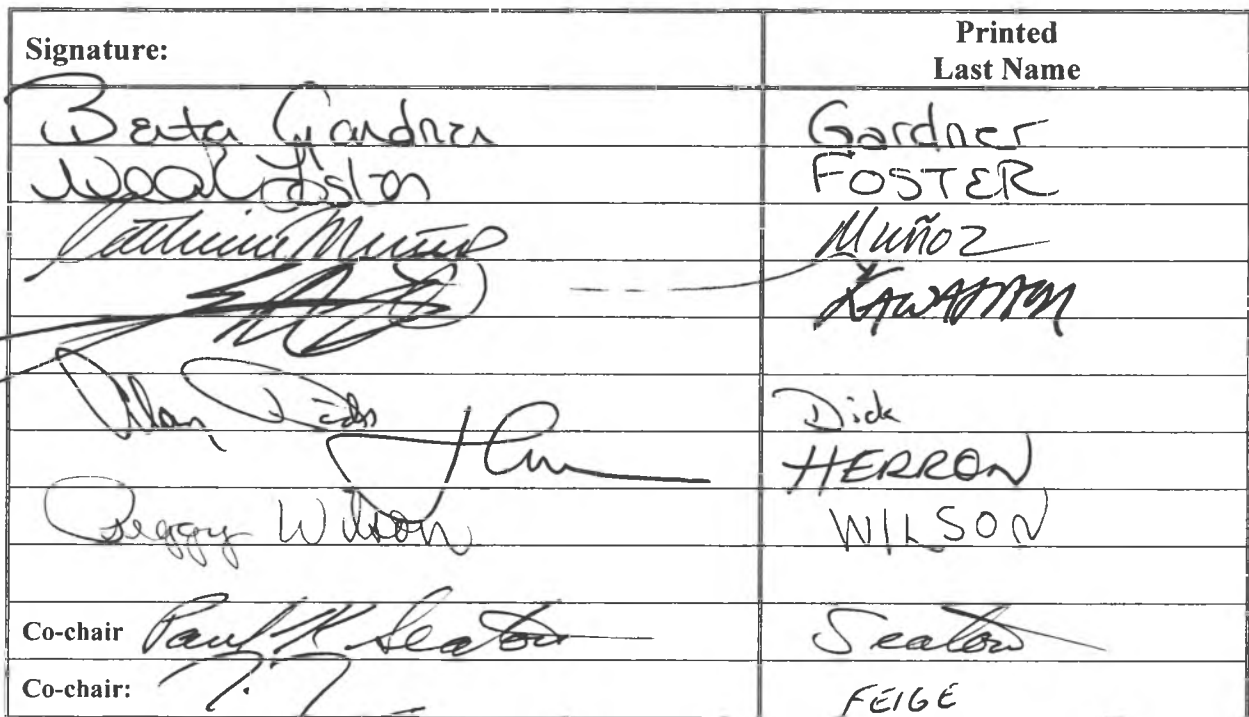 Signature: Printed Last Name
Berta Gardner Gardner
FOSTER
Muñoz Muñoz
KAWASAKI
Alan Dick Dick
HERRON
Peggy Wilson WILSON
Co-chair Paul K Seaton Seaton
Co-chair: FEIGE